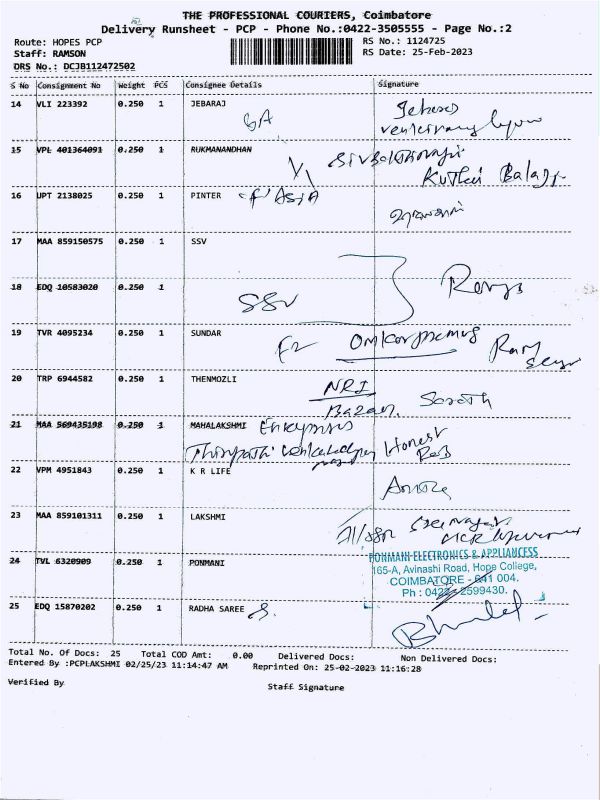 THE PROFESSIONAL COURIERS, Coimbatore
Delivery Runsheet - PCP - Phone No.:0422-3505555 - Page No.:2
Route: HOPES PCP
RS No.: 1124725
Staff: RAMSON
RS Date: 25-Feb-2023
DRS No.: DCJB112472502
S No Consignment No Weight PCS Consignee Details Signature
14 VLI 223392 0.250 1 JEBARAJ
15 VPL 401364091 0.250 1 RUKMANANDHAN
Balaji
16 UPT 2138025 0.250 1 PINTER ASIA
17 MAA 859150575 0.250 1 SSV
18 EDQ 10583020 0.250 1
SSV
19 TVR 4095234 0.250 1 SUNDAR
20 TRP 6944582 0.250 1 THENMOZLI
NRI
Bazaar. Sarath
21 MAA 569435198 0.250 1 MAHALAKSHMI
Honest
22 VPM 4951843 0.250 1 K R LIFE
23 MAA 859101311 0.250 1 LAKSHMI
24 TVL 6320909 0.250 1 PONMANI
PONMANI ELECTRONICS & APPLIANCESS
165-A, Avinashi Road, Hope College,
COIMBATORE - 641 004.
Ph : 0422 - 2599430.
25 EDQ 15870202 0.250 1 RADHA SAREE
Total No. Of Docs: 25 Total COD Amt: 0.00 Delivered Docs: Non Delivered Docs:
Entered By :PCPLAKSHMI 02/25/23 11:14:47 AM Reprinted On: 25-02-2023 11:16:28
Verified By
Staff Signature